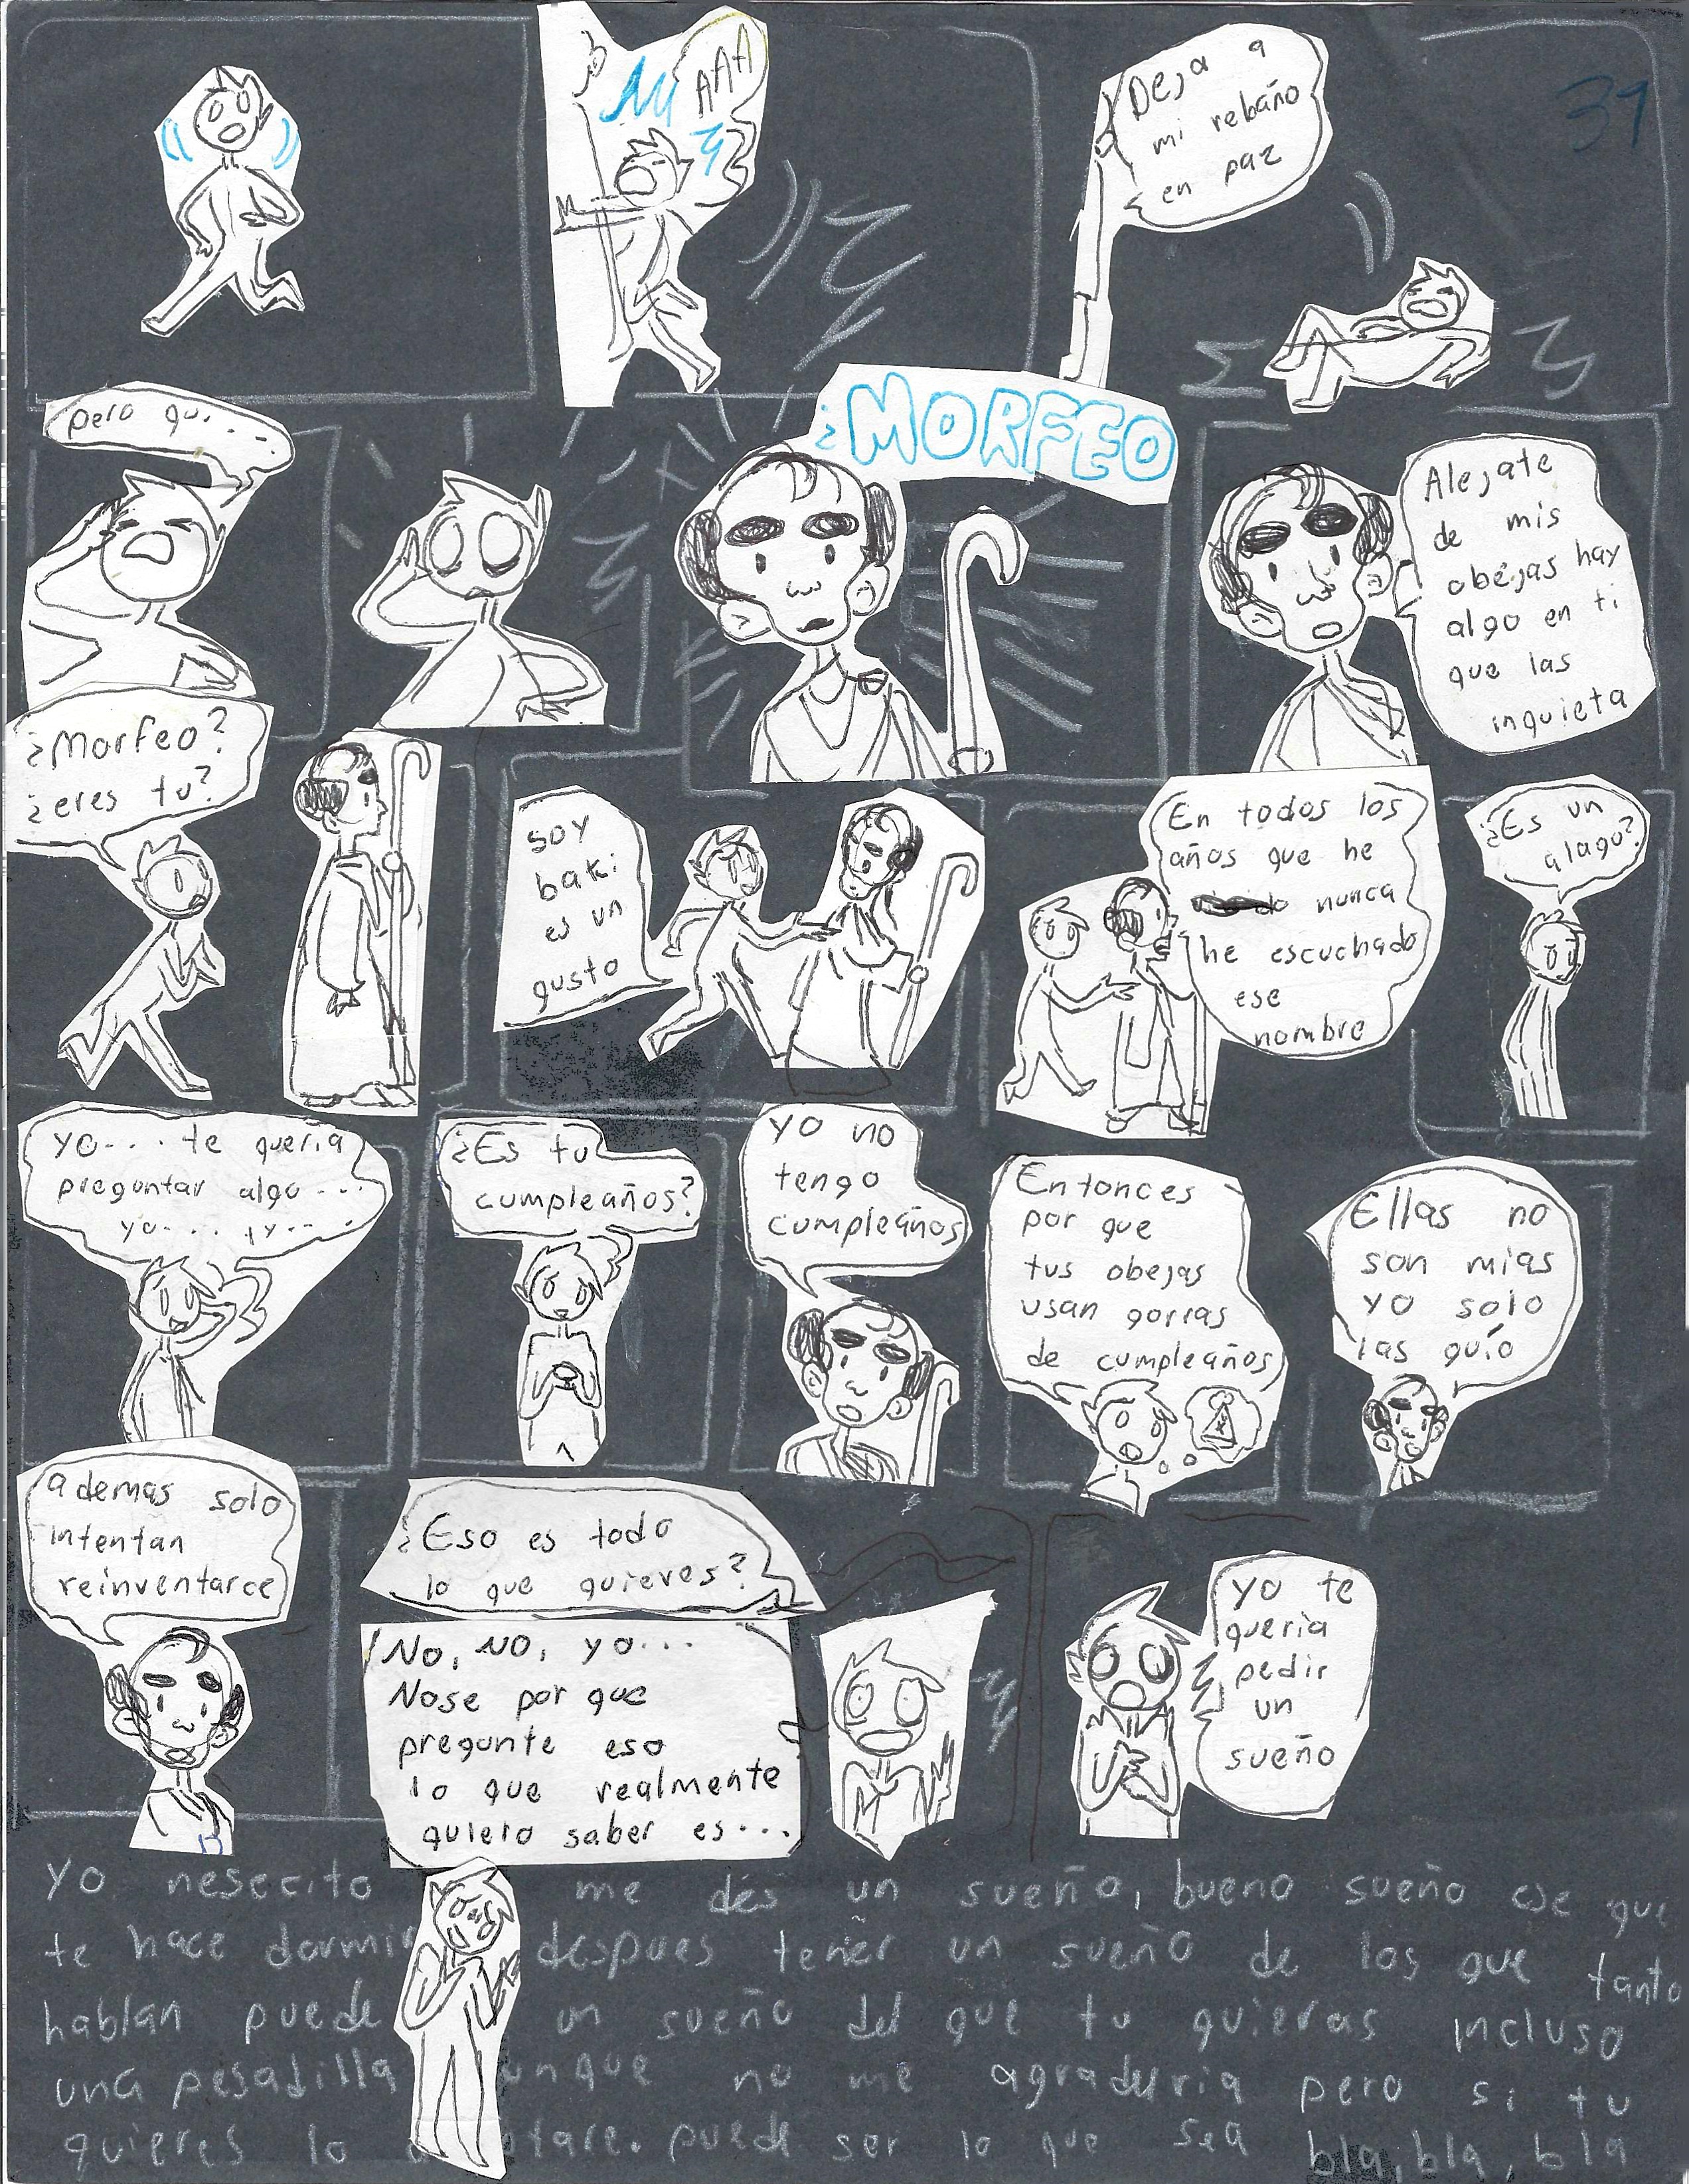 31
AAA
Deja a
mi rebaño
en paz
pero qu...
¿MORFEO
Alejate
de mis
obejas hay
algo en ti
que las
inquieta
¿Morfeo?
¿eres tu?
soy
baki
es un
gusto
En todos los
años que he
nunca
he escuchado
ese
nombre
¿Es un
alago?
yo... te queria
preguntar algo...
yo.... y...
¿Es tu
cumpleaños?
yo no
tengo
cumpleaños
Entonces
por que
tus obejas
usan gorras
de cumpleaños
Ellas no
son mias
yo solo
las guío
ademas solo
intentan
reinventarce
¿Eso es todo
lo que quieres?
No, NO, yo...
Nose por que
pregunte eso
lo que realmente
quiero saber es...
yo te
queria
pedir
un
sueño
yo nesecito me dés un sueño, bueno sueño ese que
te hace dormir despues tener un sueño de los que tanto
hablan puede un sueño del que tu quieras incluso
una pesadilla unque no me agraduria pero si tu
quieres lo tare. puede ser lo que sea bla, bla, bla